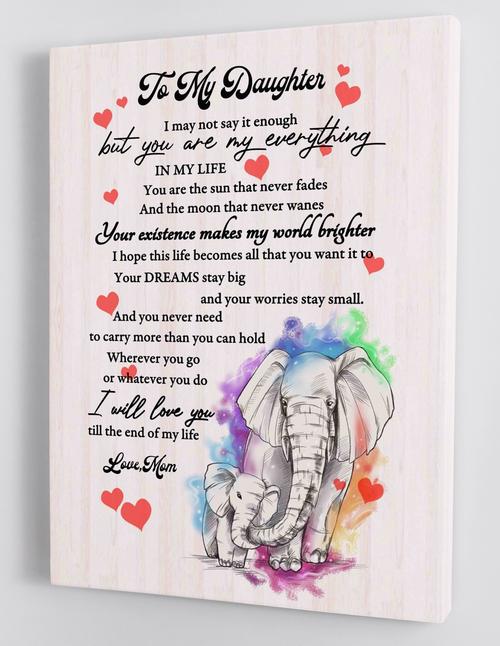 To My Daughter
I may not say it enough
but you are my everything
IN MY LIFE
You are the sun that never fades
And the moon that never wanes
Your existence makes my world brighter
I hope this life becomes all that you want it to
Your DREAMS stay big
and your worries stay small.
And you never need
to carry more than you can hold
Wherever you go
or whatever you do
I will love you
till the end of my life
Love,Mom